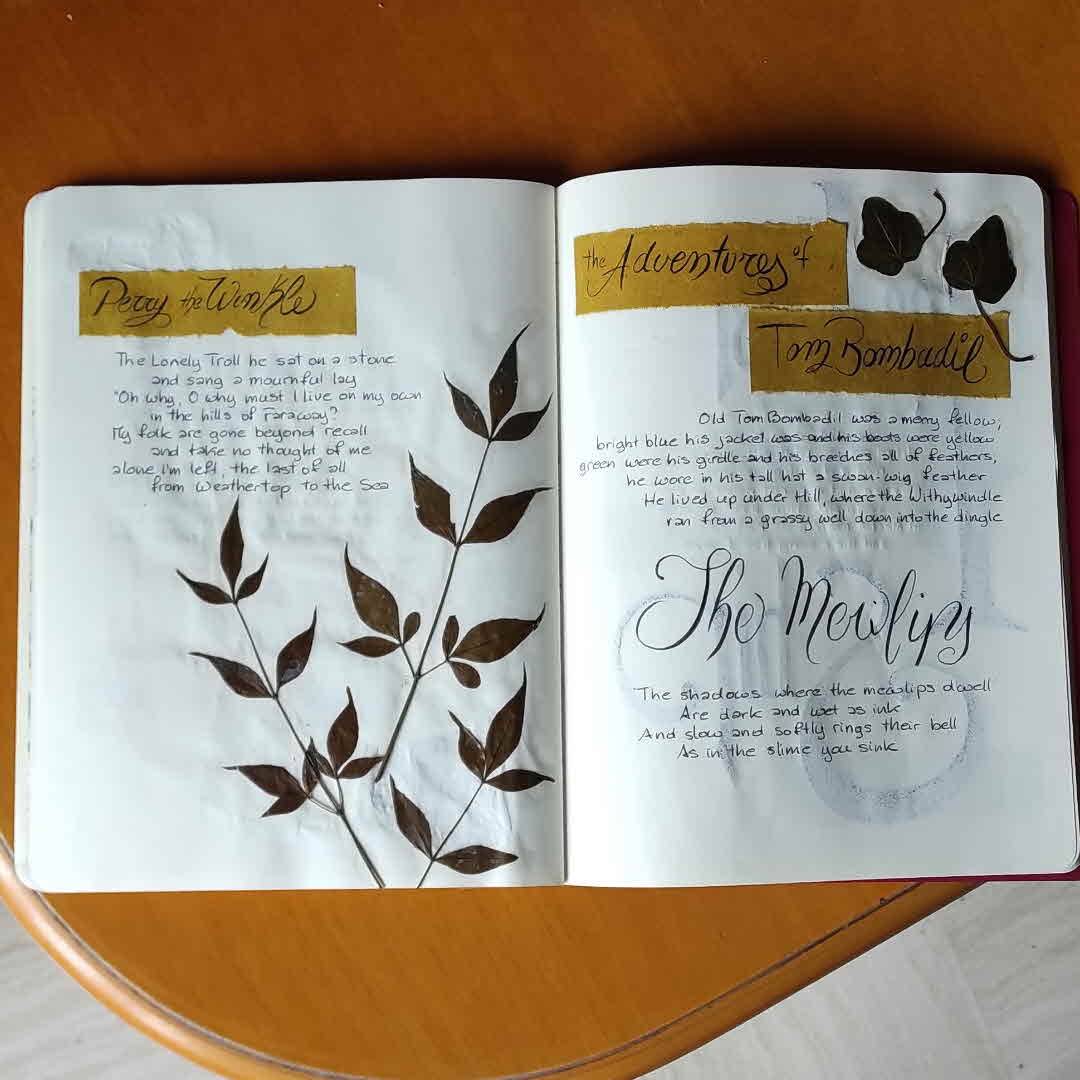 Perry the Winkle
The Lonely Troll he sat on a stone
and sang a mournful lay
"Oh why, O why must I live on my own
in the hills of Faraway?
My folk are gone beyond recall
and take no thought of me
alone I'm left, the last of all
from Weathertop to the Sea
the Adventures of
Tom Bombadil
Old Tom Bombadil was a merry fellow,
bright blue his jacket was and his boots were yellow
green were his girdle and his breeches all of feathers,
he wore in his tall hat a swan-wig feather
He lived up under Hill, where the Withywindle
ran from a grassy well down into the dingle
The Mewlips
The shadows where the mewlips dwell
Are dark and wet as ink
And slow and softly rings their bell
As in the slime you sink